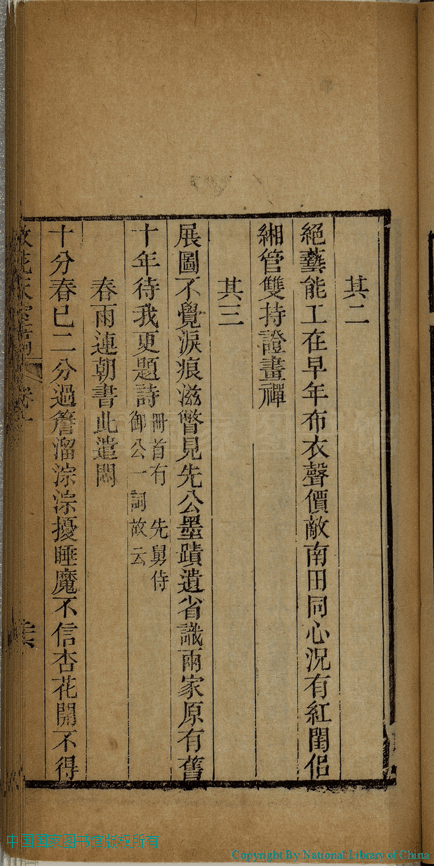 其二
絕藝能工在早年布衣聲價敵南田同心況有紅閨侶
緗管雙持證畫禪
其三
展圖不覺淚痕滋瞥見先公墨蹟遺省識兩家原有舊
十年待我更題詩冊首有先舅侍御公一詞故云
春雨連朝書此遣悶
十分春已二分過簷溜淙淙擾睡魔不信杏花開不得
Copyright By National Library of China